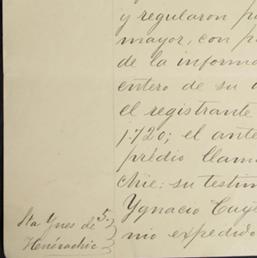 y regularon p
mayor, con p
de la informa
entero de su
el registrante
1720; el ante
prédio llama
chic: su testim
Ygnacio Cuy
nio expedido
Sta Ynes de 5.
Henérachic